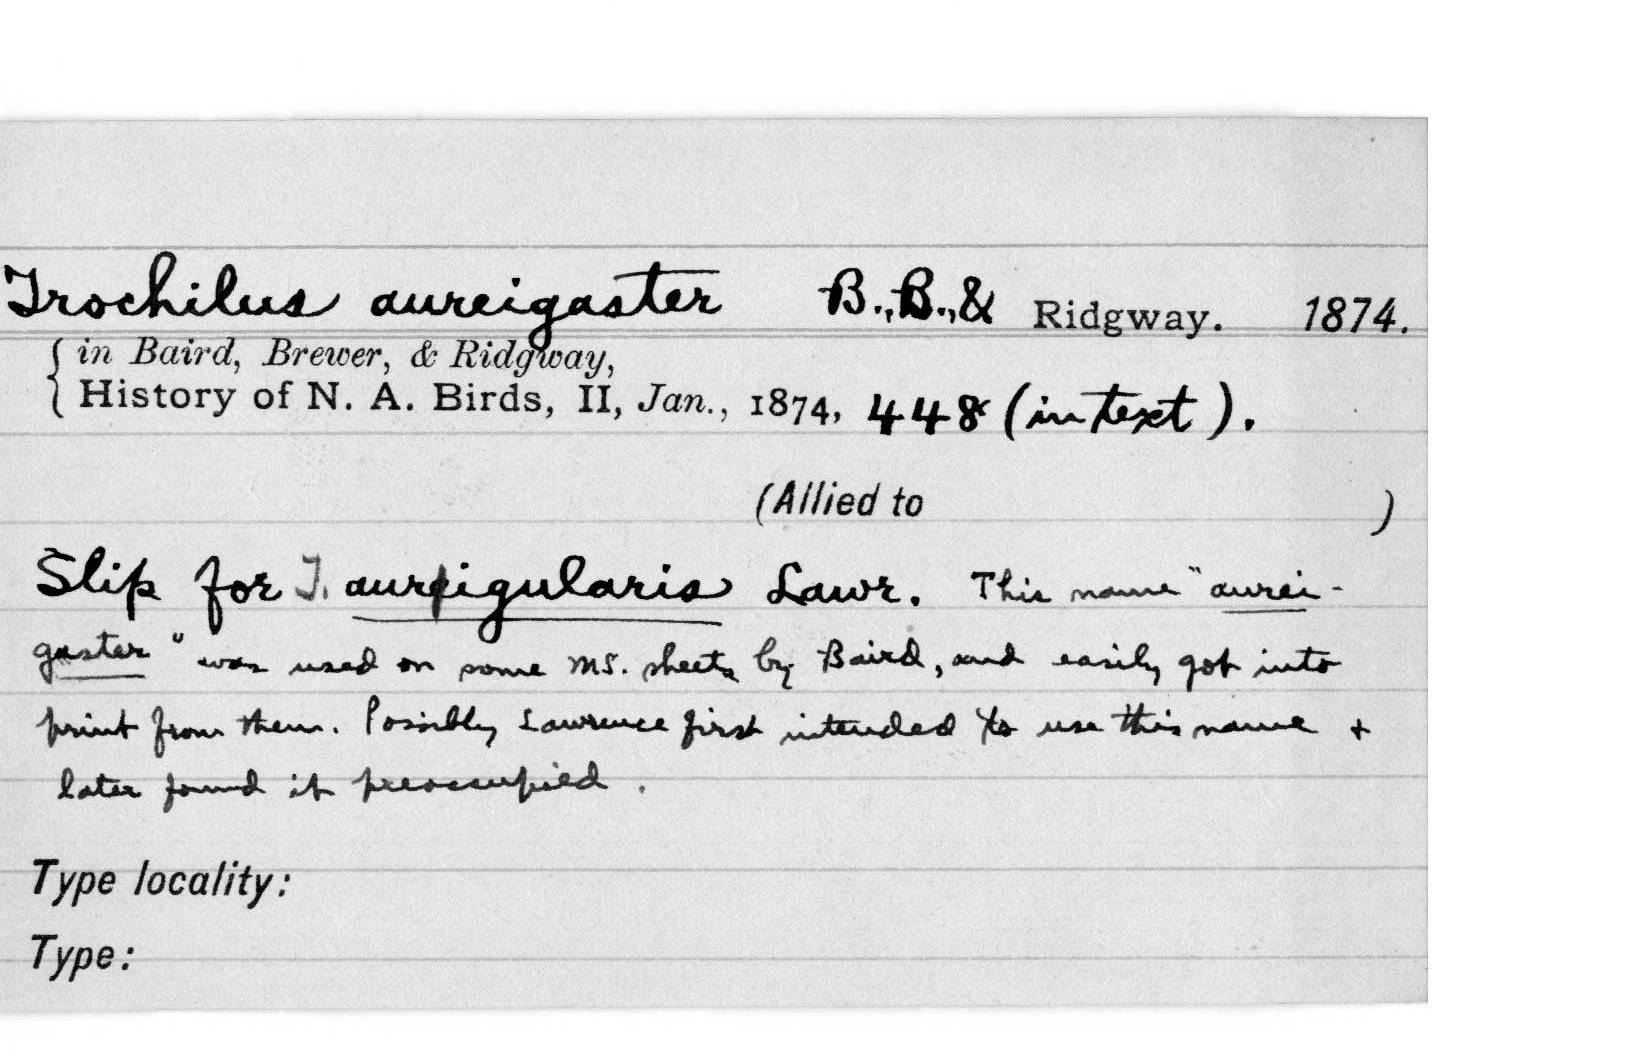 Trochilus aureigaster B., B., & Ridgway. 1874.
{ in Baird, Brewer, & Ridgway,
History of N. A. Birds, II, Jan., 1874, 448 (in text).
(Allied to )
Slip for T. aureigularis Lawr. This name "aurei-
gaster" was used on some MS. sheets by Baird, and easily got into
print from them. Possibly Lawrence first intended to use this name +
later found it preoccupied.
Type locality:
Type: